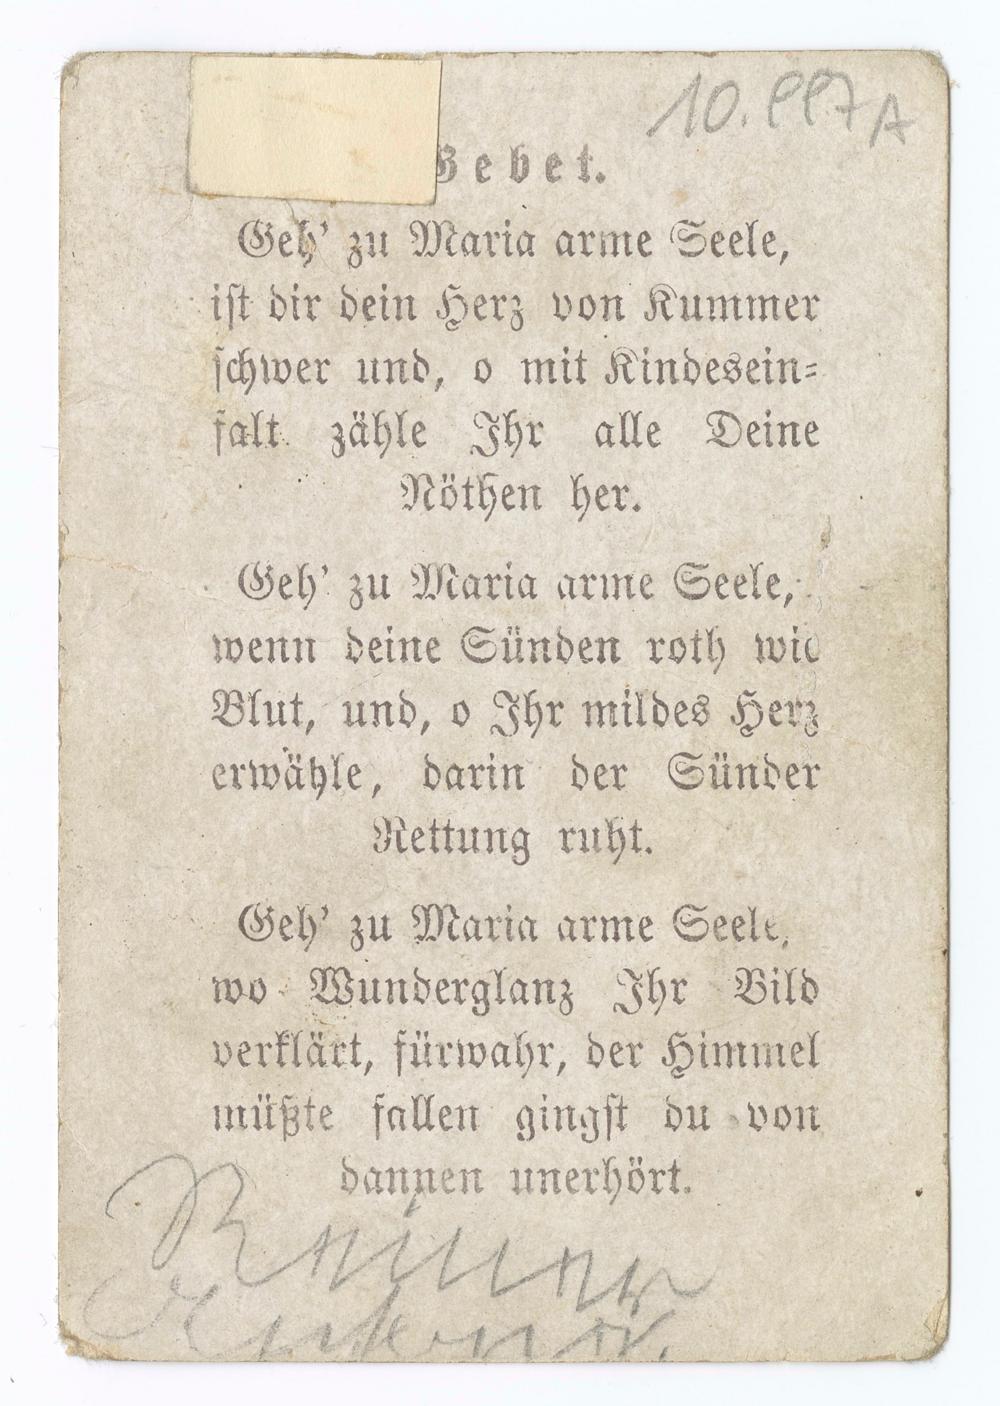 10.997A
Gebet.
Geh' zu Maria arme Seele,
ist dir dein Herz von Kummer
schwer und, o mit Kindesein=
falt zähle Ihr alle Deine
Nöthen her.
Geh' zu Maria arme Seele,
wenn deine Sünden roth wie
Blut, und, o Ihr mildes Herz
erwähle, darin der Sünder
Rettung ruht.
Geh' zu Maria arme Seele,
wo Wunderglanz Ihr Bild
verklärt, fürwahr, der Himmel
müßte fallen gingst du von
dannen unerhört.